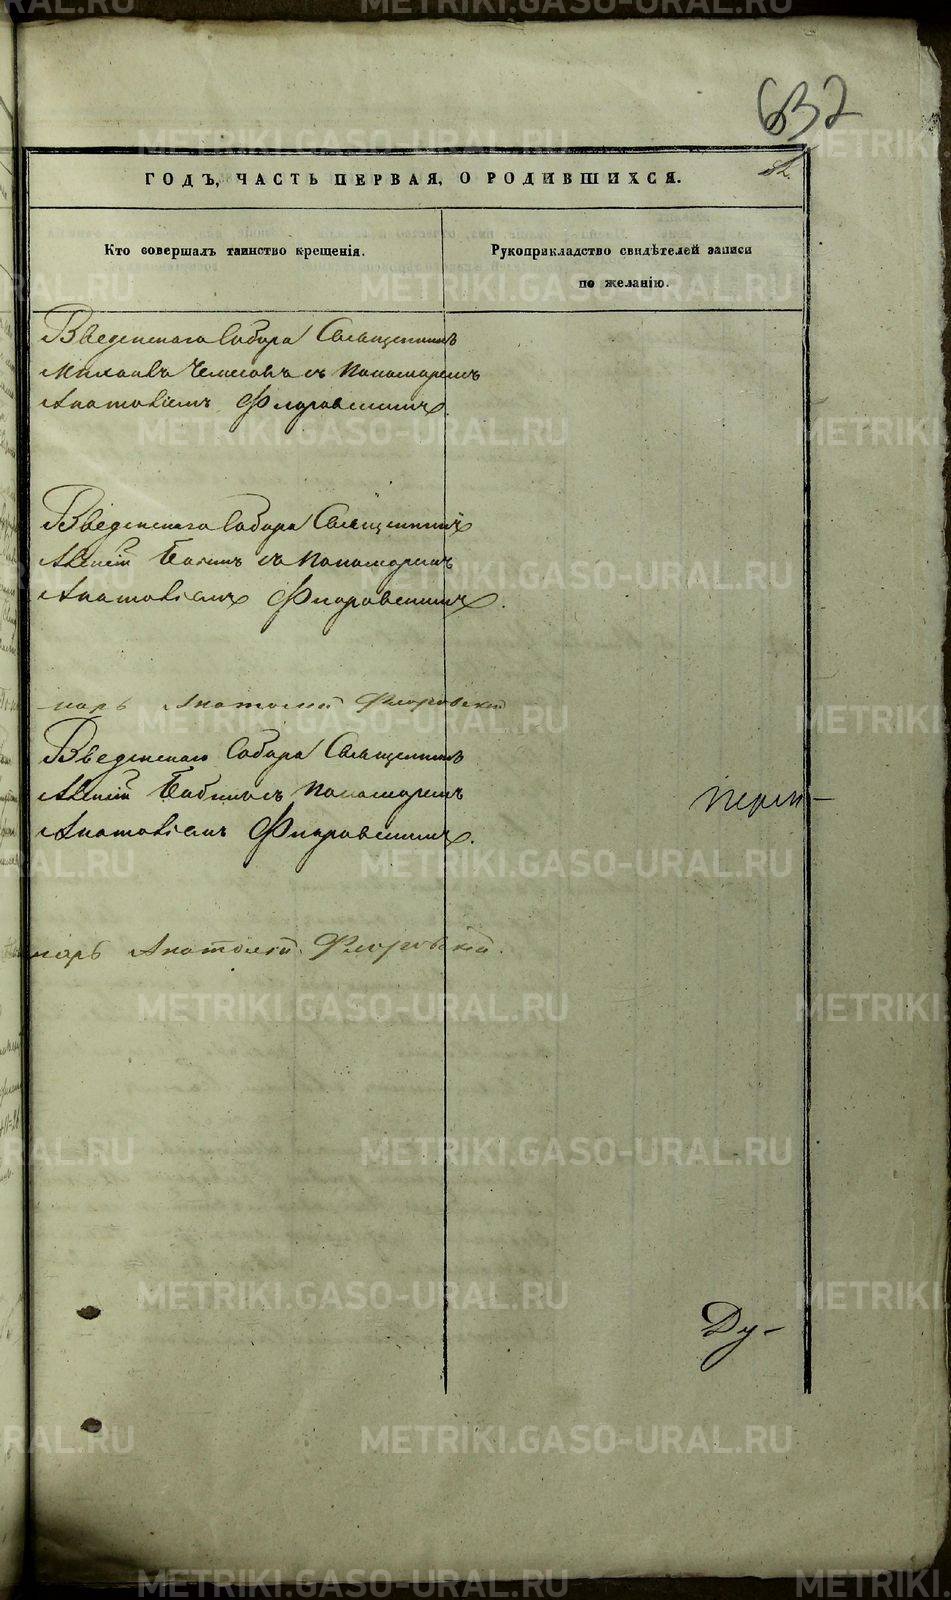 632
82.
ГОДЪ, ЧАСТЬ ПЕРВАЯ, О РОДИВШИХСЯ.
Кто совершалъ таинство крещенія.
Рукоприкладство свидѣтелей записи
по желанію.
Введенскаго Собора Священникъ
Михаилъ съ Пономаремъ
Анатоліемъ Флоровскимъ.
Введенскаго Собора Священникъ
Алексій Бабинъ съ Пономаремъ
Анатоліемъ Флоровскимъ.
-марь Анатолій Флоровскій
Введенскаго Собора Священникъ
Алексій Бабинъ съ Пономаремъ
Анатоліемъ Флоровскимъ.
марь Анатолій Флоровскій.
Ду-
METRIKI.GASO-URAL.RU